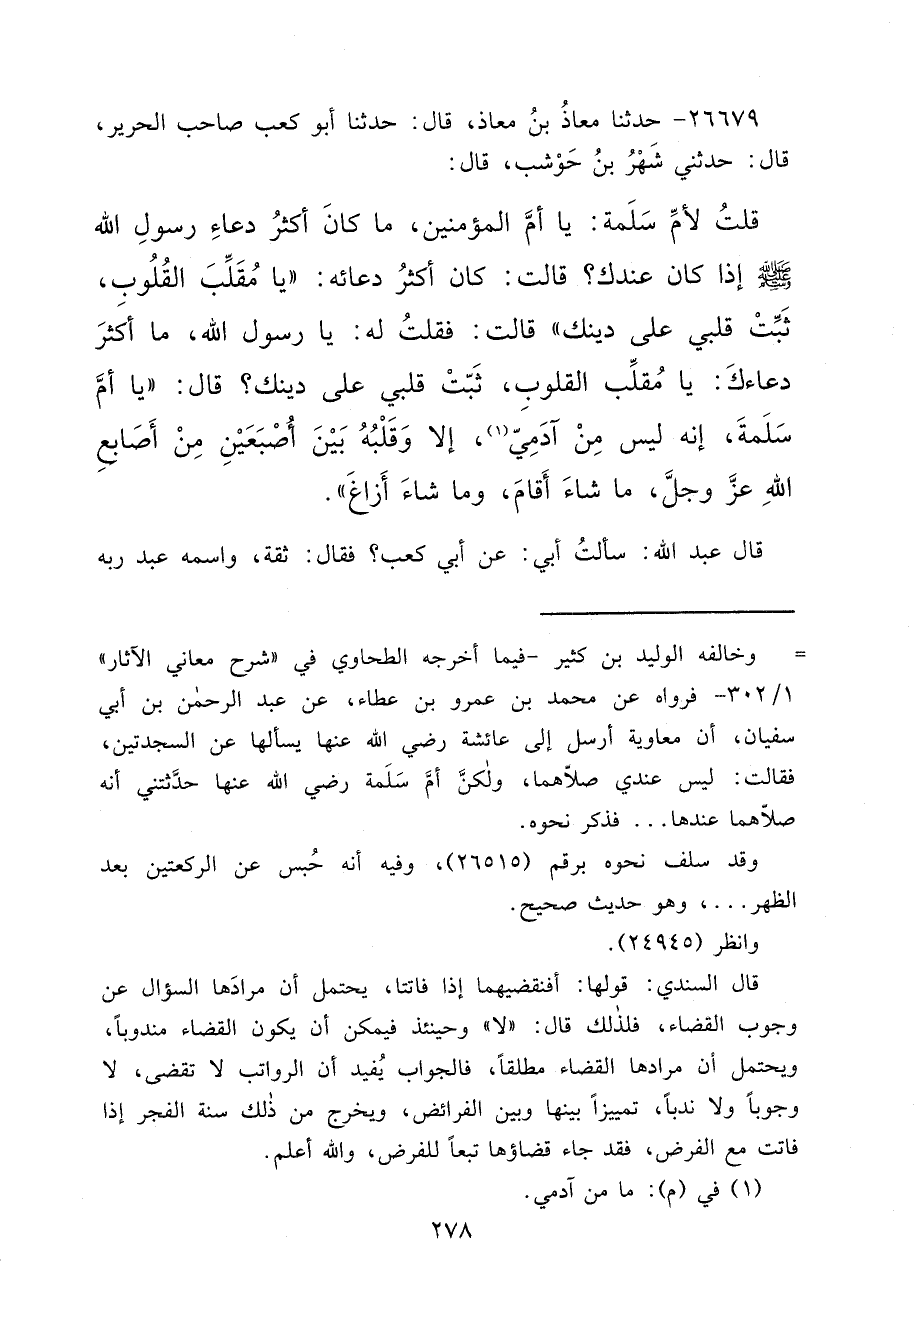 ٢٦٦٧٩- حدثنا معاذُ بنُ معاذ، قال: حدثنا أبو كعب صاحب الحرير،
قال: حدثني شَهْرُ بنُ حَوْشب، قال:
قلتُ لأمِّ سَلَمة: يا أمَّ المؤمنين، ما كانَ أكثرُ دعاءِ رسولِ الله
ﷺ إذا كان عندك؟ قالت: كان أكثرُ دعائه: «يا مُقَلِّبَ القُلُوبِ،
ثَبِّتْ قلبي على دينك» قالت: فقلتُ له: يا رسول الله، ما أكثرَ
دعاءكَ: يا مُقلِّب القلوبِ، ثَبّتْ قلبي على دينك؟ قال: «يا أمَّ
سَلَمةَ، إنه ليس مِنْ آدَمِيّ(١)، إلا وَقَلْبُهُ بَيْنَ أُصْبَعَيْنِ مِنْ أَصَابعِ
اللهِ عزَّ وجلَّ، ما شاءَ أَقامَ، وما شاءَ أَزاغَ».
قال عبد الله: سألتُ أبي: عن أبي كعب؟ فقال: ثقة، واسمه عبد ربه
= وخالفه الوليد بن كثير -فيما أخرجه الطحاوي في «شرح معاني الآثار»
٣٠٢/١- فرواه عن محمد بن عمرو بن عطاء، عن عبد الرحمٰن بن أبي
سفيان، أن معاوية أرسل إلى عائشة رضي الله عنها يسألها عن السجدتين،
فقالت: ليس عندي صلاّهما، ولٰكنَّ أمَّ سَلَمة رضي الله عنها حدَّثتني أنه
صلاّهما عندها... فذكر نحوه.
وقد سلف نحوه برقم (٢٦٥١٥)، وفيه أنه حُبس عن الركعتين بعد
الظهر...، وهو حديث صحيح.
وانظر (٢٤٩٤٥).
قال السندي: قولها: أفنقضيهما إذا فاتتا، يحتمل أن مرادَها السؤال عن
وجوب القضاء، فلذٰلك قال: «لا» وحينئذ فيمكن أن يكون القضاء مندوباً،
ويحتمل أن مرادها القضاء مطلقاً، فالجواب يُفيد أن الرواتب لا تقضى، لا
وجوباً ولا ندباً، تمييزاً بينها وبين الفرائض، ويخرج من ذٰلك سنة الفجر إذا
فاتت مع الفرض، فقد جاء قضاؤها تبعاً للفرض، والله أعلم.
(١) في (م): ما من آدمي.
٢٧٨